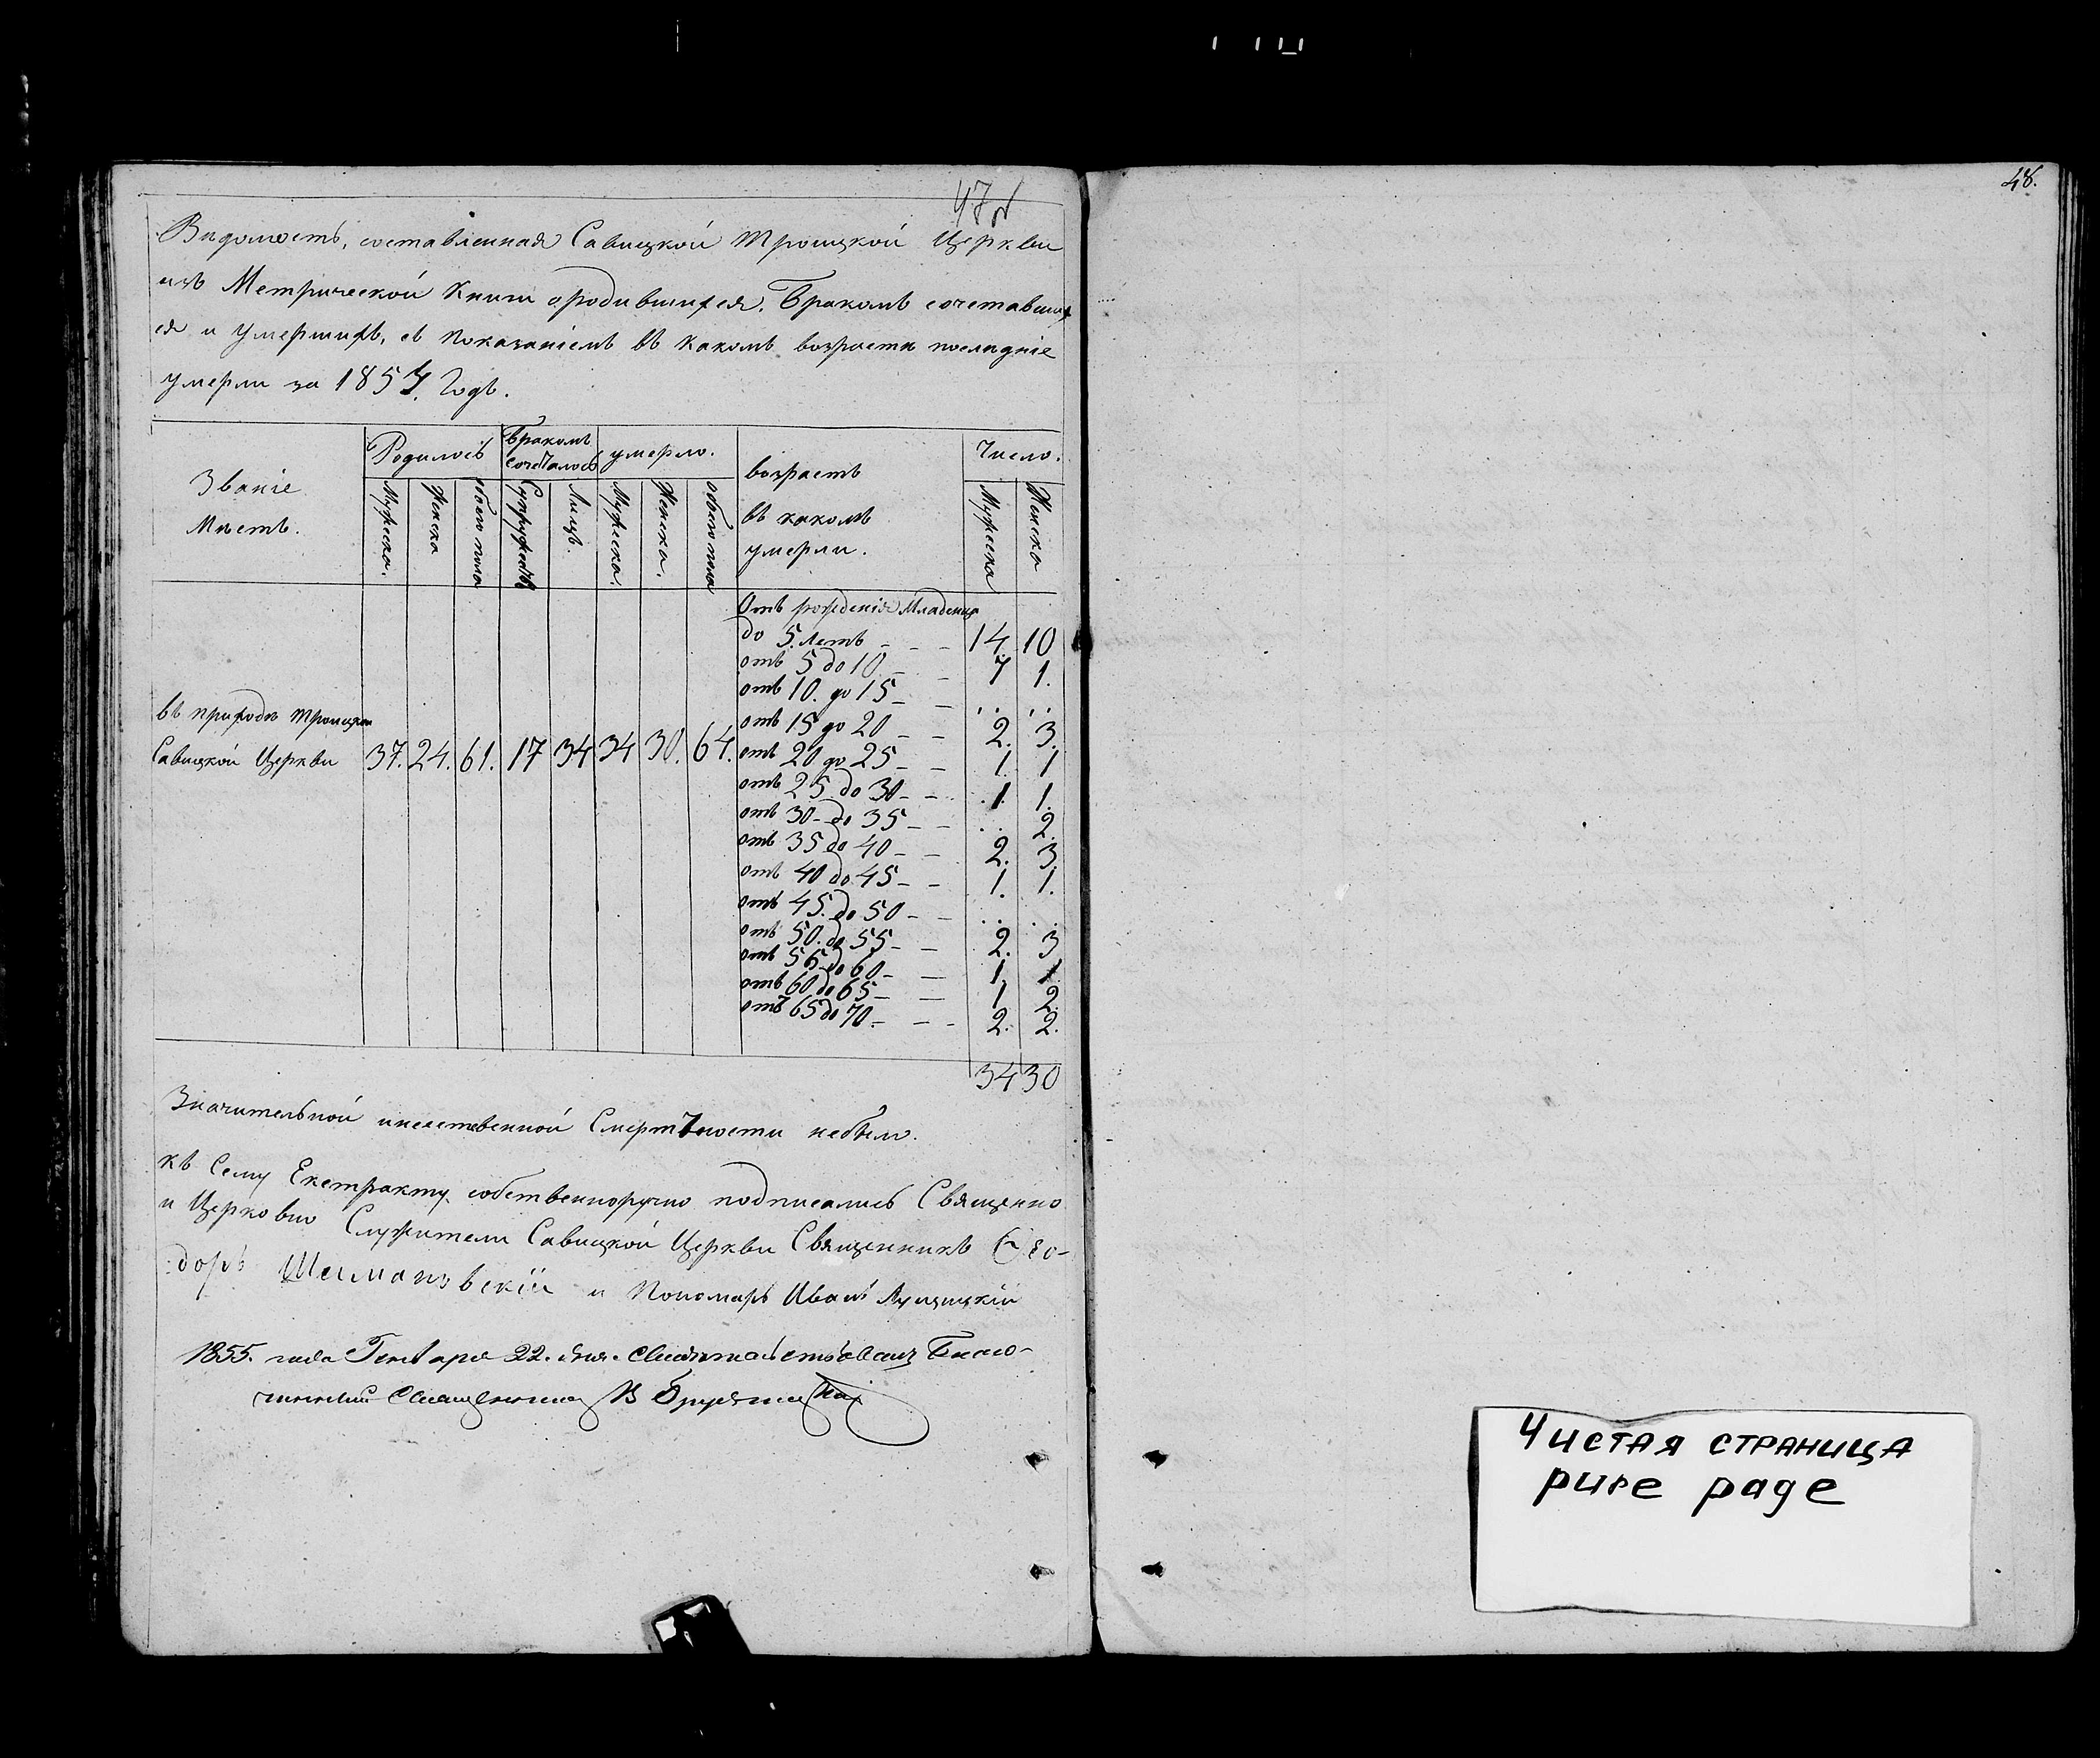 47
Видомость, составленная Савицкой Троицкой Церкви
изъ Метрической Книги ородившихся, Бракомъ сочетавших
ся и Умершихъ, съ показаніемъ въ какомъ возрасте последніе
умерли за 1854. Годъ.
Званіе Местъ.
Родилось
Бракомъ сочеталось
умерло.
возрастъ въ какомъ умерли.
Число.
Мужеска. Женска обоего пола Супружествъ Лицъ. Мужеска. Женска. обоего пола Мужеска Женска
Отъ рожденія Младенца
до 5. летъ - - - 14. 10
отъ 5 до 10 - - 7 1.
отъ 10. до 15 - - .. ..
отъ 15 до 20 - - 2. 3.
въ приходе Троицкой
Савицкой Церкви 37. 24. 61. 17 34 34 30. 64.
отъ 20 до 25 - - 1. 1
отъ 25 до 30 - - 1. 1.
отъ 30 - до 35 - - .. 2.
отъ 35 до 40 - - 2. 3
отъ 40 до 45 - - 1. 1.
отъ 45. до 50 - - .. ..
отъ 50. до 55 - - 2. 3
отъ 55 до 60 - - 1. 1
отъ 60 до 65 - - 1 2
отъ 65 до 70 - - - 2. 2.
34 30
Значительной инеестевенной Смертности небыло.
къ Сему Екстракту собственноручно подписались Священно
и Церковно Служители Савицкой Церкви Священникъ Ѳео-
доръ Шеимановскій и Пономарь Иванъ
1855. года Генваря 22. дня. Свидетельствовалъ Благо-
чинный Священникъ В
48.
Чистая страница
pure page